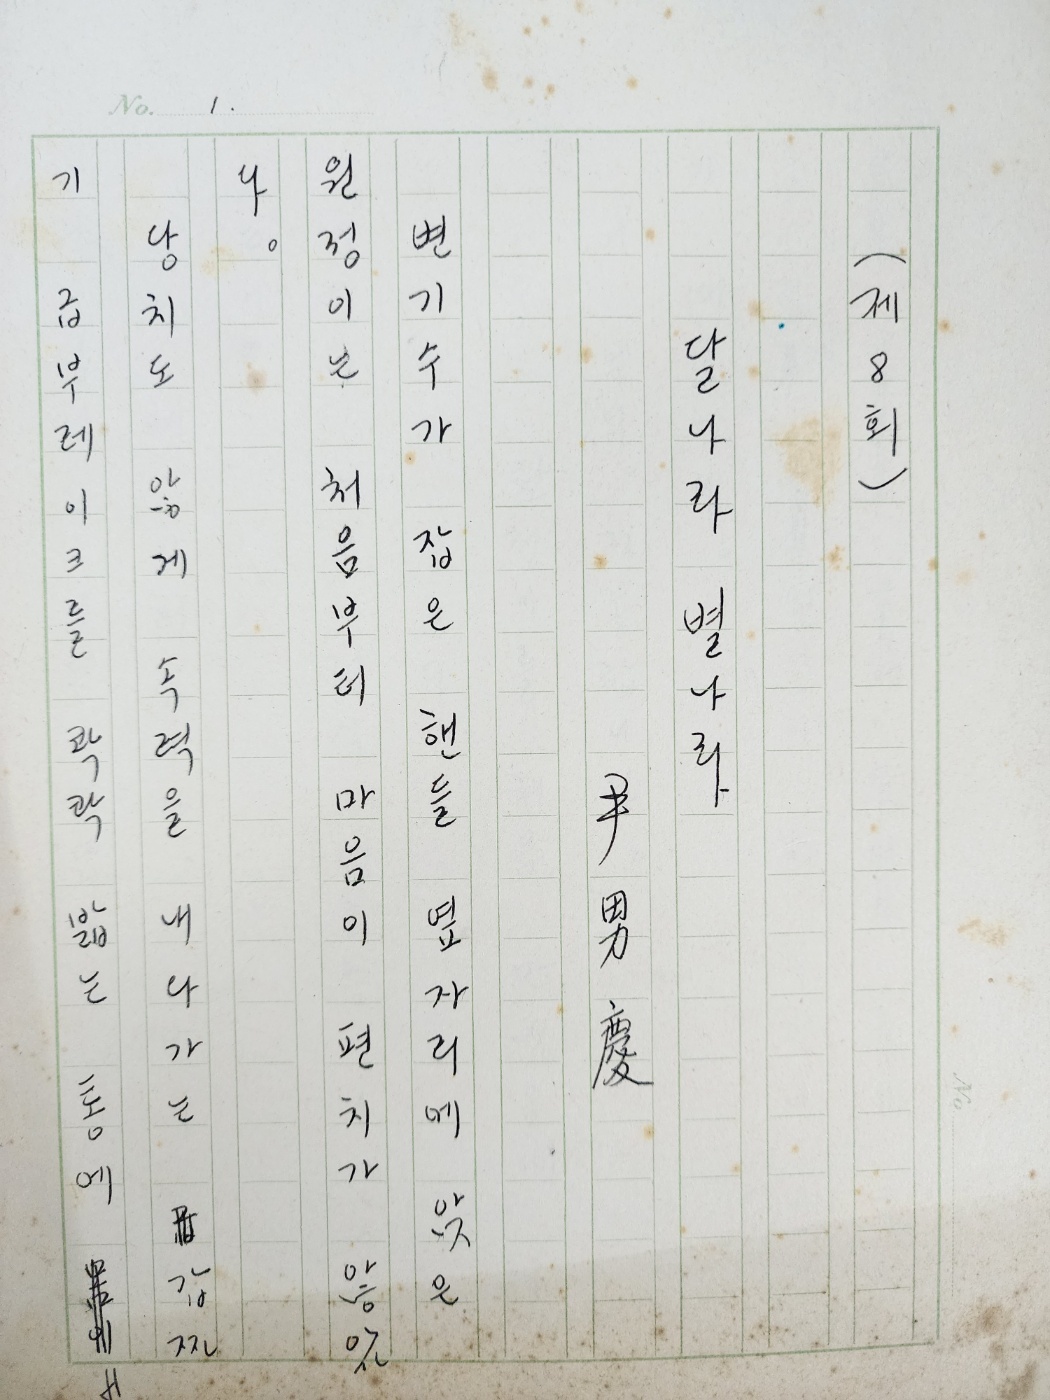 No. 1.
(제 8 회)
달나라 별나라
尹男慶
변기수가 잡은 핸들 옆자리에 앉은
원정이는 처음부터 마음이 편치가 않았
나。
당치도 않게 속력을 내나가는 갑짜
기 급부레이크를 콱콱 밟는 통에
No